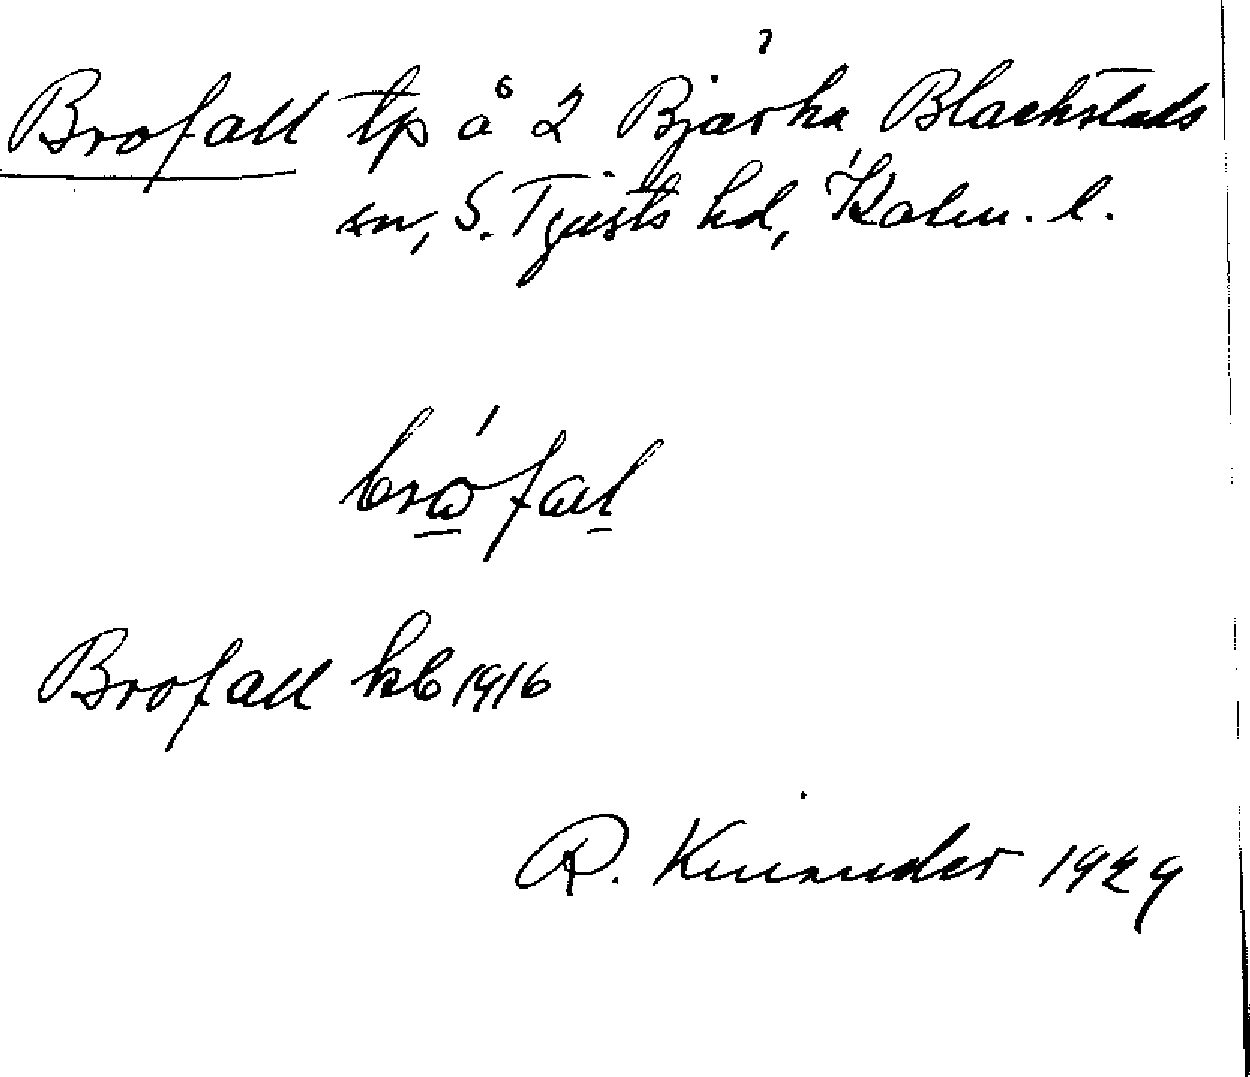 Brofall tp å 2 Bjärka Blackstads
sn, S. Tjusts hd, Kalm. l.
brófal
Brofall kb 1916
R. Kinander 1929